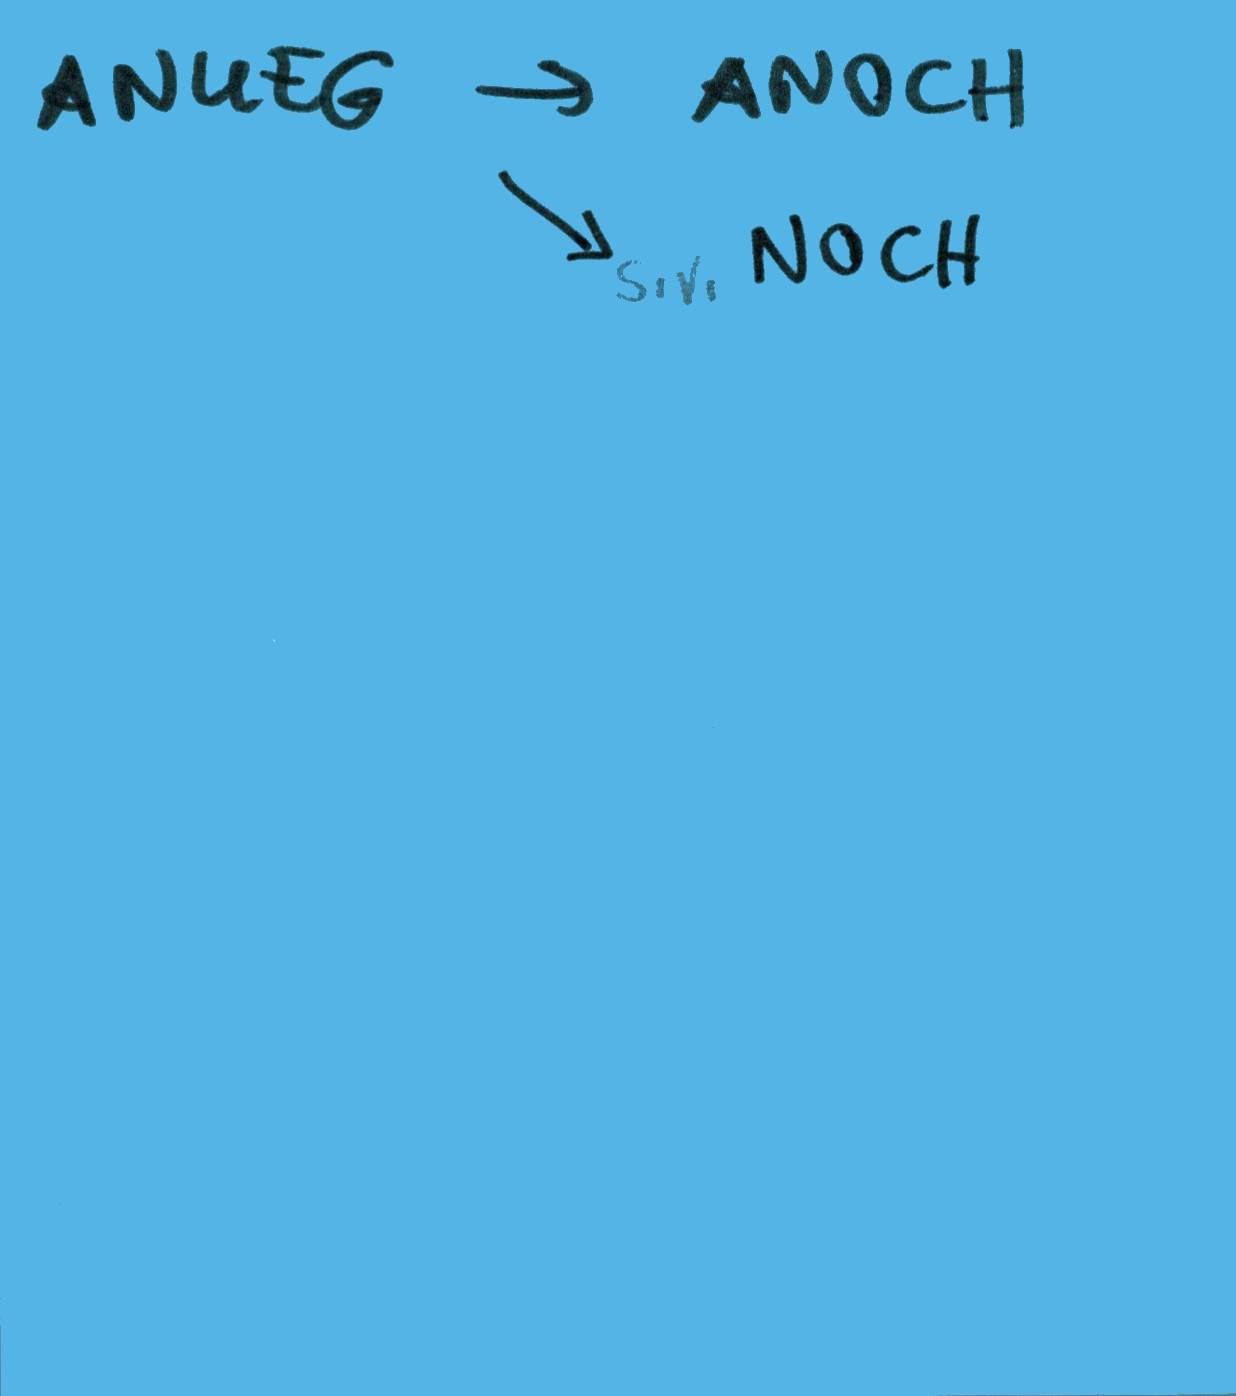 ANUEG → ANOCH
SIVI NOCH